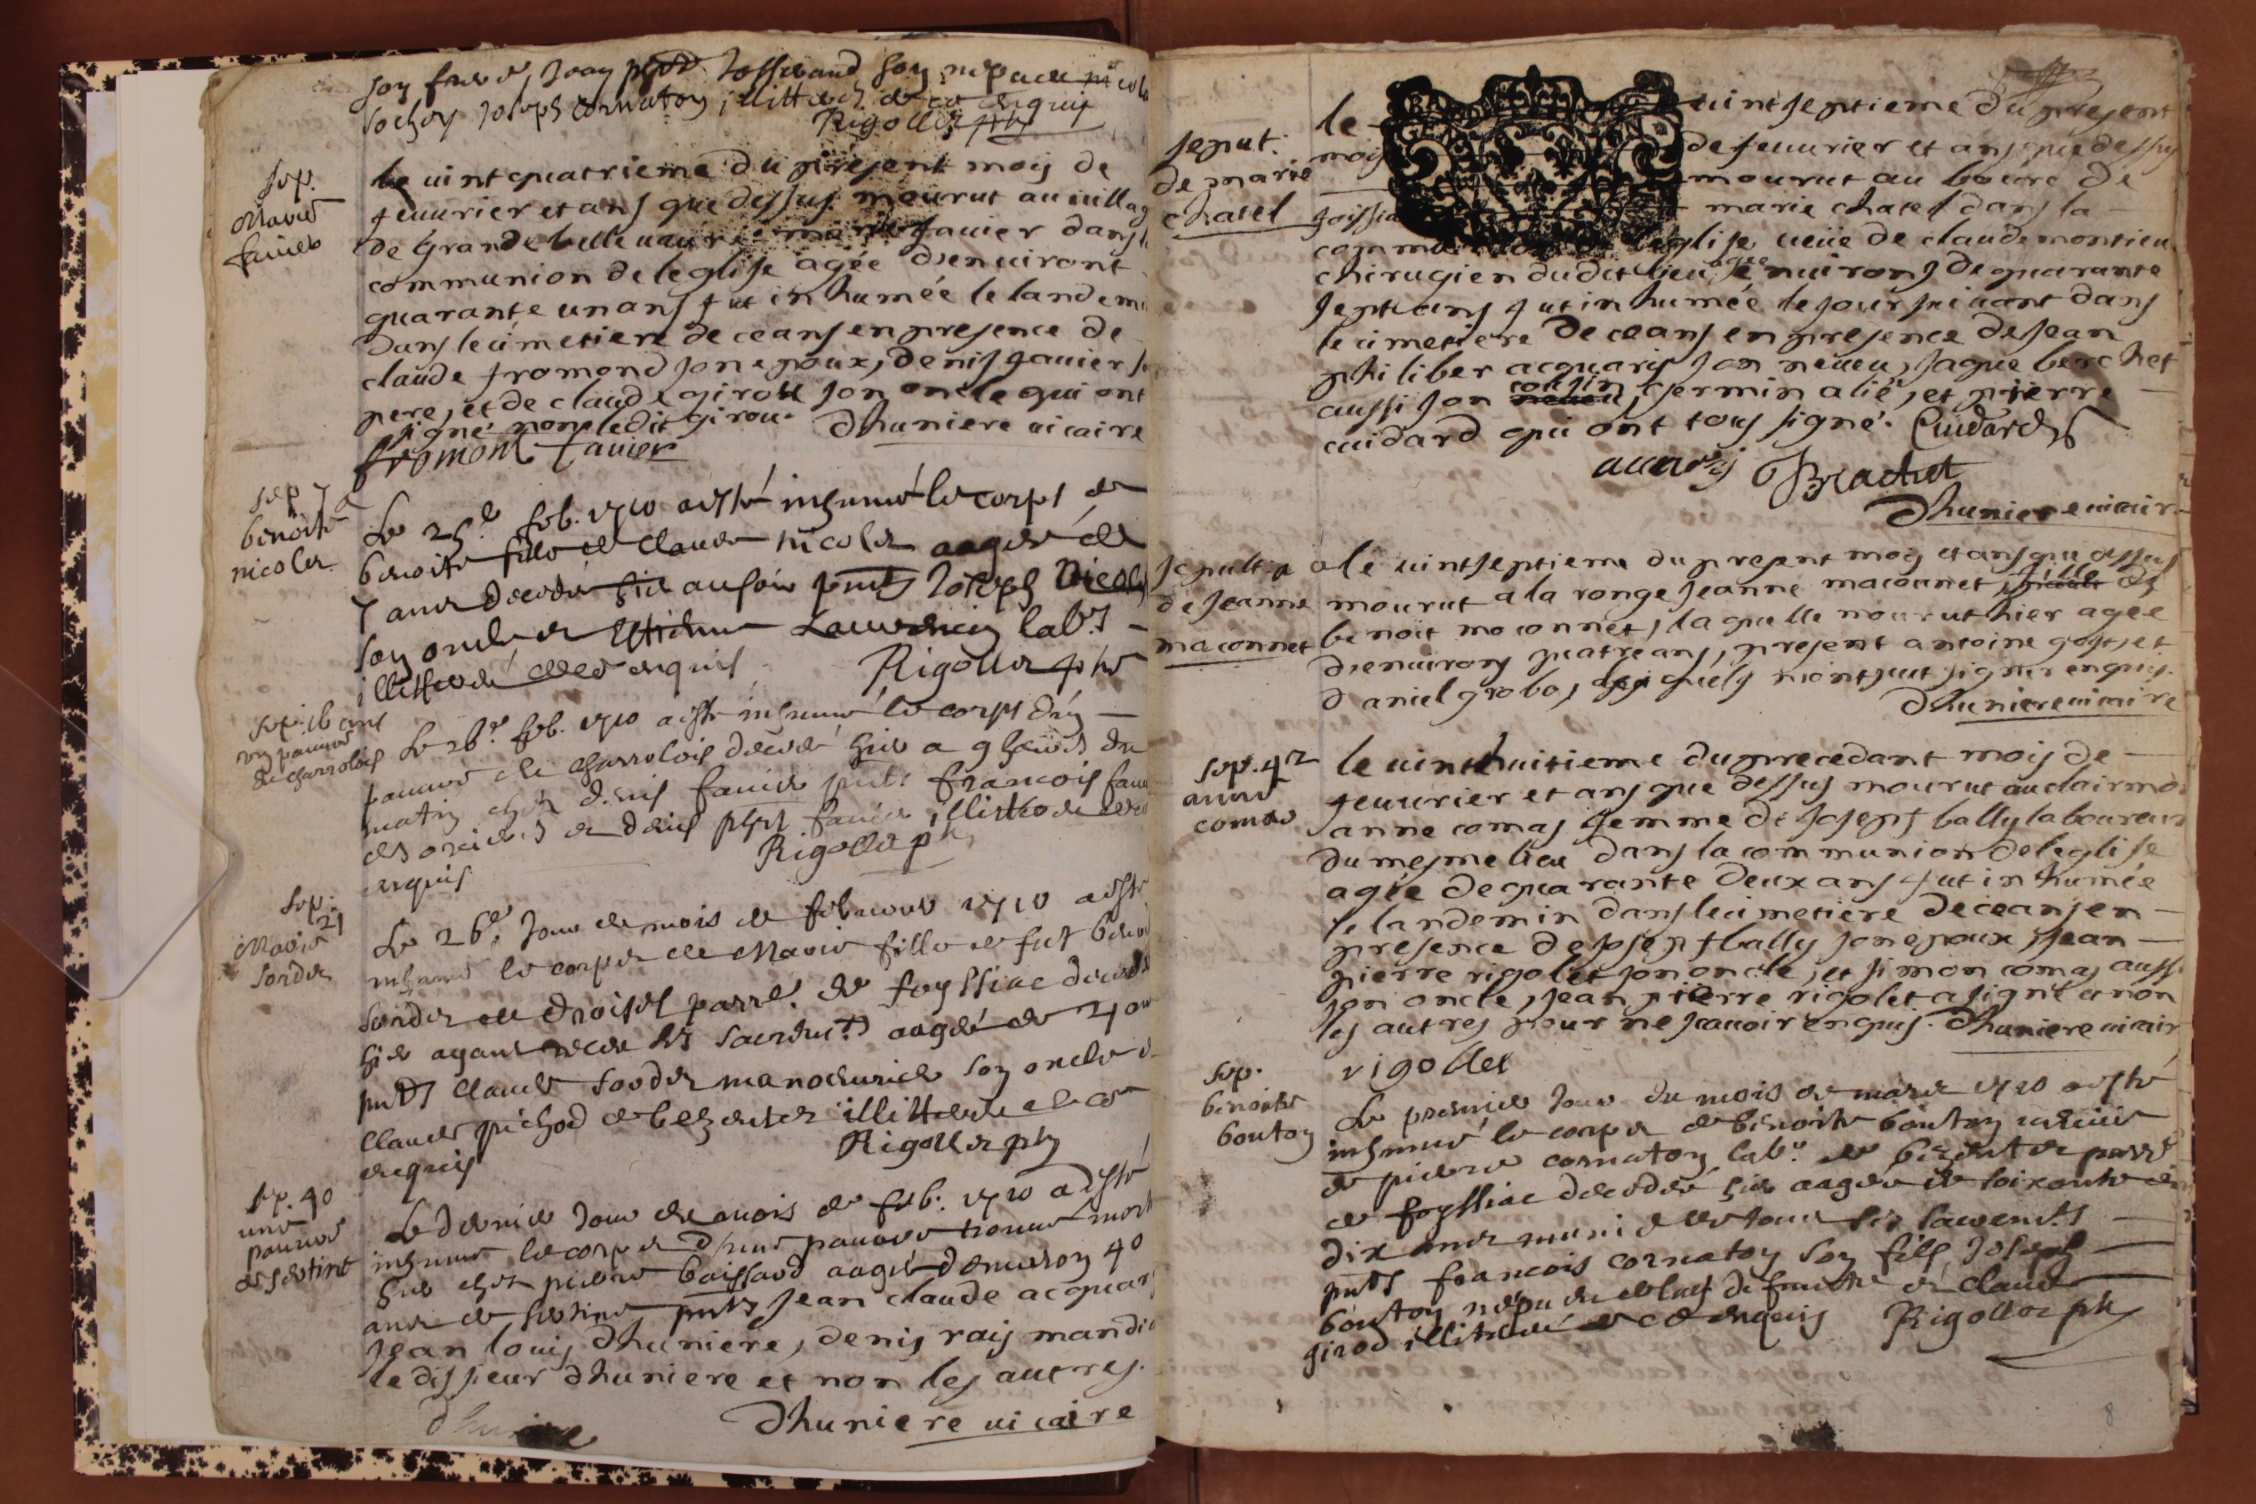 soy frere, Jean
sochon Joseph cornaton, illitterez de ce enquis
Rigollet ptre
Sep.
Marie
fauier
le uint quatrieme du present mois de
feuurier et ans que dessus mourut au uillag
de grande belle uaure marie fauier dans l
communion de leglise agée d'enuiront
quarante un ans fut inhumée le landem
dans le cimetiere de ceans en presence de
claude fromond son epoux, denis fauier s
pere, et de claude girou son oncle qui ont
signé non ledit girou. Dhuniere uicaire
fromont fauier
sep 7 a
benoite
nicolet
Le 25.e feb. 1710 a esté inhumé le corps de
benoite fille de Claude nicolet aagée de
7 ans decedée hier au soir pnts Joseph Nicol
son oncle et Laurencin lab.r
illitteré de ce enquis Rigollet ptre
sep. 16 ans
un pauure
de charrolois
Le 26.e feb. 1710 a esté inhumé le corps d'un
pauure de charrolois decedé hier a 9 heures du
matin chez denis fauier pnts francois fau
et denis fauier, illitterez de
enquis Rigollet ptre
Sep. 21
Marie
sordet
Le 26.e Jour du mois de feburier 1710 a esté
inhumé le corps de Marie fille de fut benoi
sordet de Croiset parr.e de foyssiac decedée
hier ayant receu les sacrem.ts aagée de 21 an
pnts Claude sordet manoeuurier son oncle
Claude pichod de bezentet illitterez de ce
enquis Rigollet ptre
sep. 40
une
pauure
Le dernier Jour du mois de feb. 1710 a esté
inhumé le corps d'une pauure trouué mort
hier chez pierre boissard aagé d'enuiron 40
ans pnts Jean claude acquar
Jean louis Dhuniere, denis rais mandi
ledissieur dhuniere et non les autres.
Dhuniere uicaire
seput.
de marie
chatel
le uint septieme du present
mois de feuurier et ans que dessus
mourut au bourc de
foissia marie chatel dans la
communion de leglise ueüe de claude montieu
chirugien dudit lieu agée enuirons de quarante
sept ans fut inhumée le jour suiuant dans
le cimetiere de ceans en presence de Jean
philiber acquaris son neueu, Jaque berchet
aussi son cousin germin alié, et pierre
cuidard qui ont tous signé. Cuidard
accarisj Brachet
Dhuniere uicaire
Sepult
de Jeanne
maconnet
le uint septieme du present mois et ans que dessus
mourut a la ronge Jeanne maconnet, fille de
benoit moconnet, laquelle mourut hier agee
d'enuirons quatre ans, present antoine gost, et
daniel grobo, lesquels n'ont sceut signer enquis.
Dhuniere uicaire
sep. 42
anne
comas
le uint huitieme du precedant mois de
feuurier et ans que dessus mourut au clairmo
anne comas femme de Joseph bally laboureur
du mesme lieu dans la communion de leglise
agée de quarante deux ans fut inhumée
le landemin dans le cimetiere de ceans en
presence de joseph bally son epoux, Jean
pierre rigolet son oncle, et simon comas aussi
son oncle, Jean pierre rigolet a signé et non
les autres pour ne scauoir enquis. Dhuniere uicair
rigollet
Sep.
benoite
bouton
Le premier Jour du mois de mars 1710 a esté
inhumé le corps de benoite bouton uefue
de pierre cornaton lab.r de bezentet parr.e
de foyssiac decedée hier aagée de soixante et
dix ans munie de tous les sacrem.ts
pnts francois cornaton son fils, Joseph
bouton nepueu de lad defuncte et claude
girod illitteré de ce enquis Rigollet ptre
8